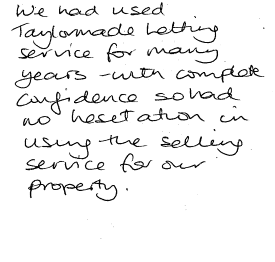 We had used
Taylormade Letting
service for many
years - with complete
confidence so had
no hesetation in
using the selling
service for our
property.